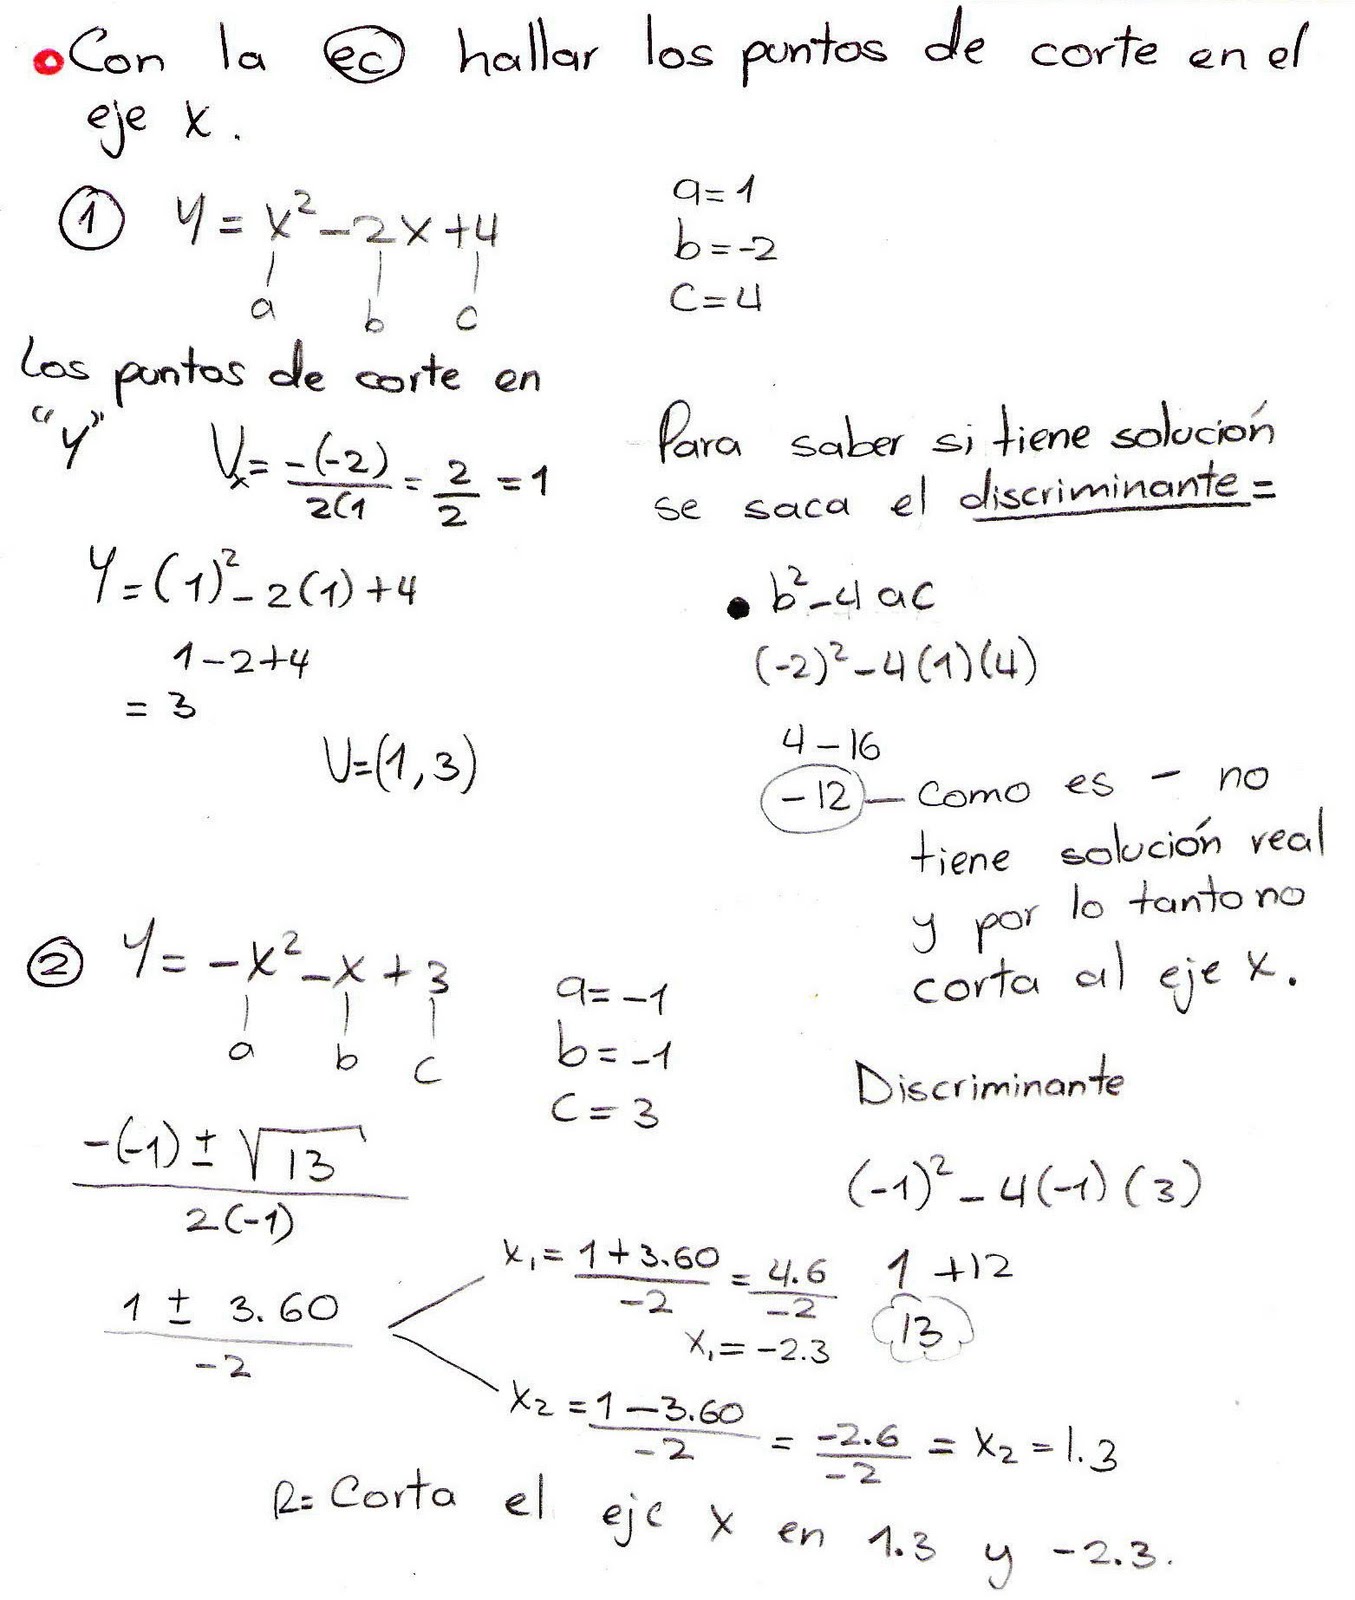 Con la ec hallar los puntos de corte en el
eje x.
① y = x² - 2x + 4
a b c
a = 1
b = -2
c = 4
Los puntos de corte en
"y"
Vx = -(-2) / 2(1 = 2/2 = 1
y = (1)² - 2(1) + 4
1 - 2 + 4
= 3
V = (1, 3)
Para saber si tiene solución
se saca el discriminante =
• b² - 4ac
(-2)² - 4(1)(4)
4 - 16
-12 — Como es - no
tiene solución real
y por lo tanto no
corta al eje x.
② y = -x² - x + 3
a b c
a = -1
b = -1
c = 3
Discriminante
(-1)² - 4(-1)(3)
1 + 12
13
-(-1) ± √13 / 2(-1)
1 ± 3.60 / -2
x₁ = 1 + 3.60 / -2 = 4.6 / -2
x₁ = -2.3
x₂ = 1 - 3.60 / -2 = -2.6 / -2 = x₂ = 1.3
R= Corta el eje x en 1.3 y -2.3.